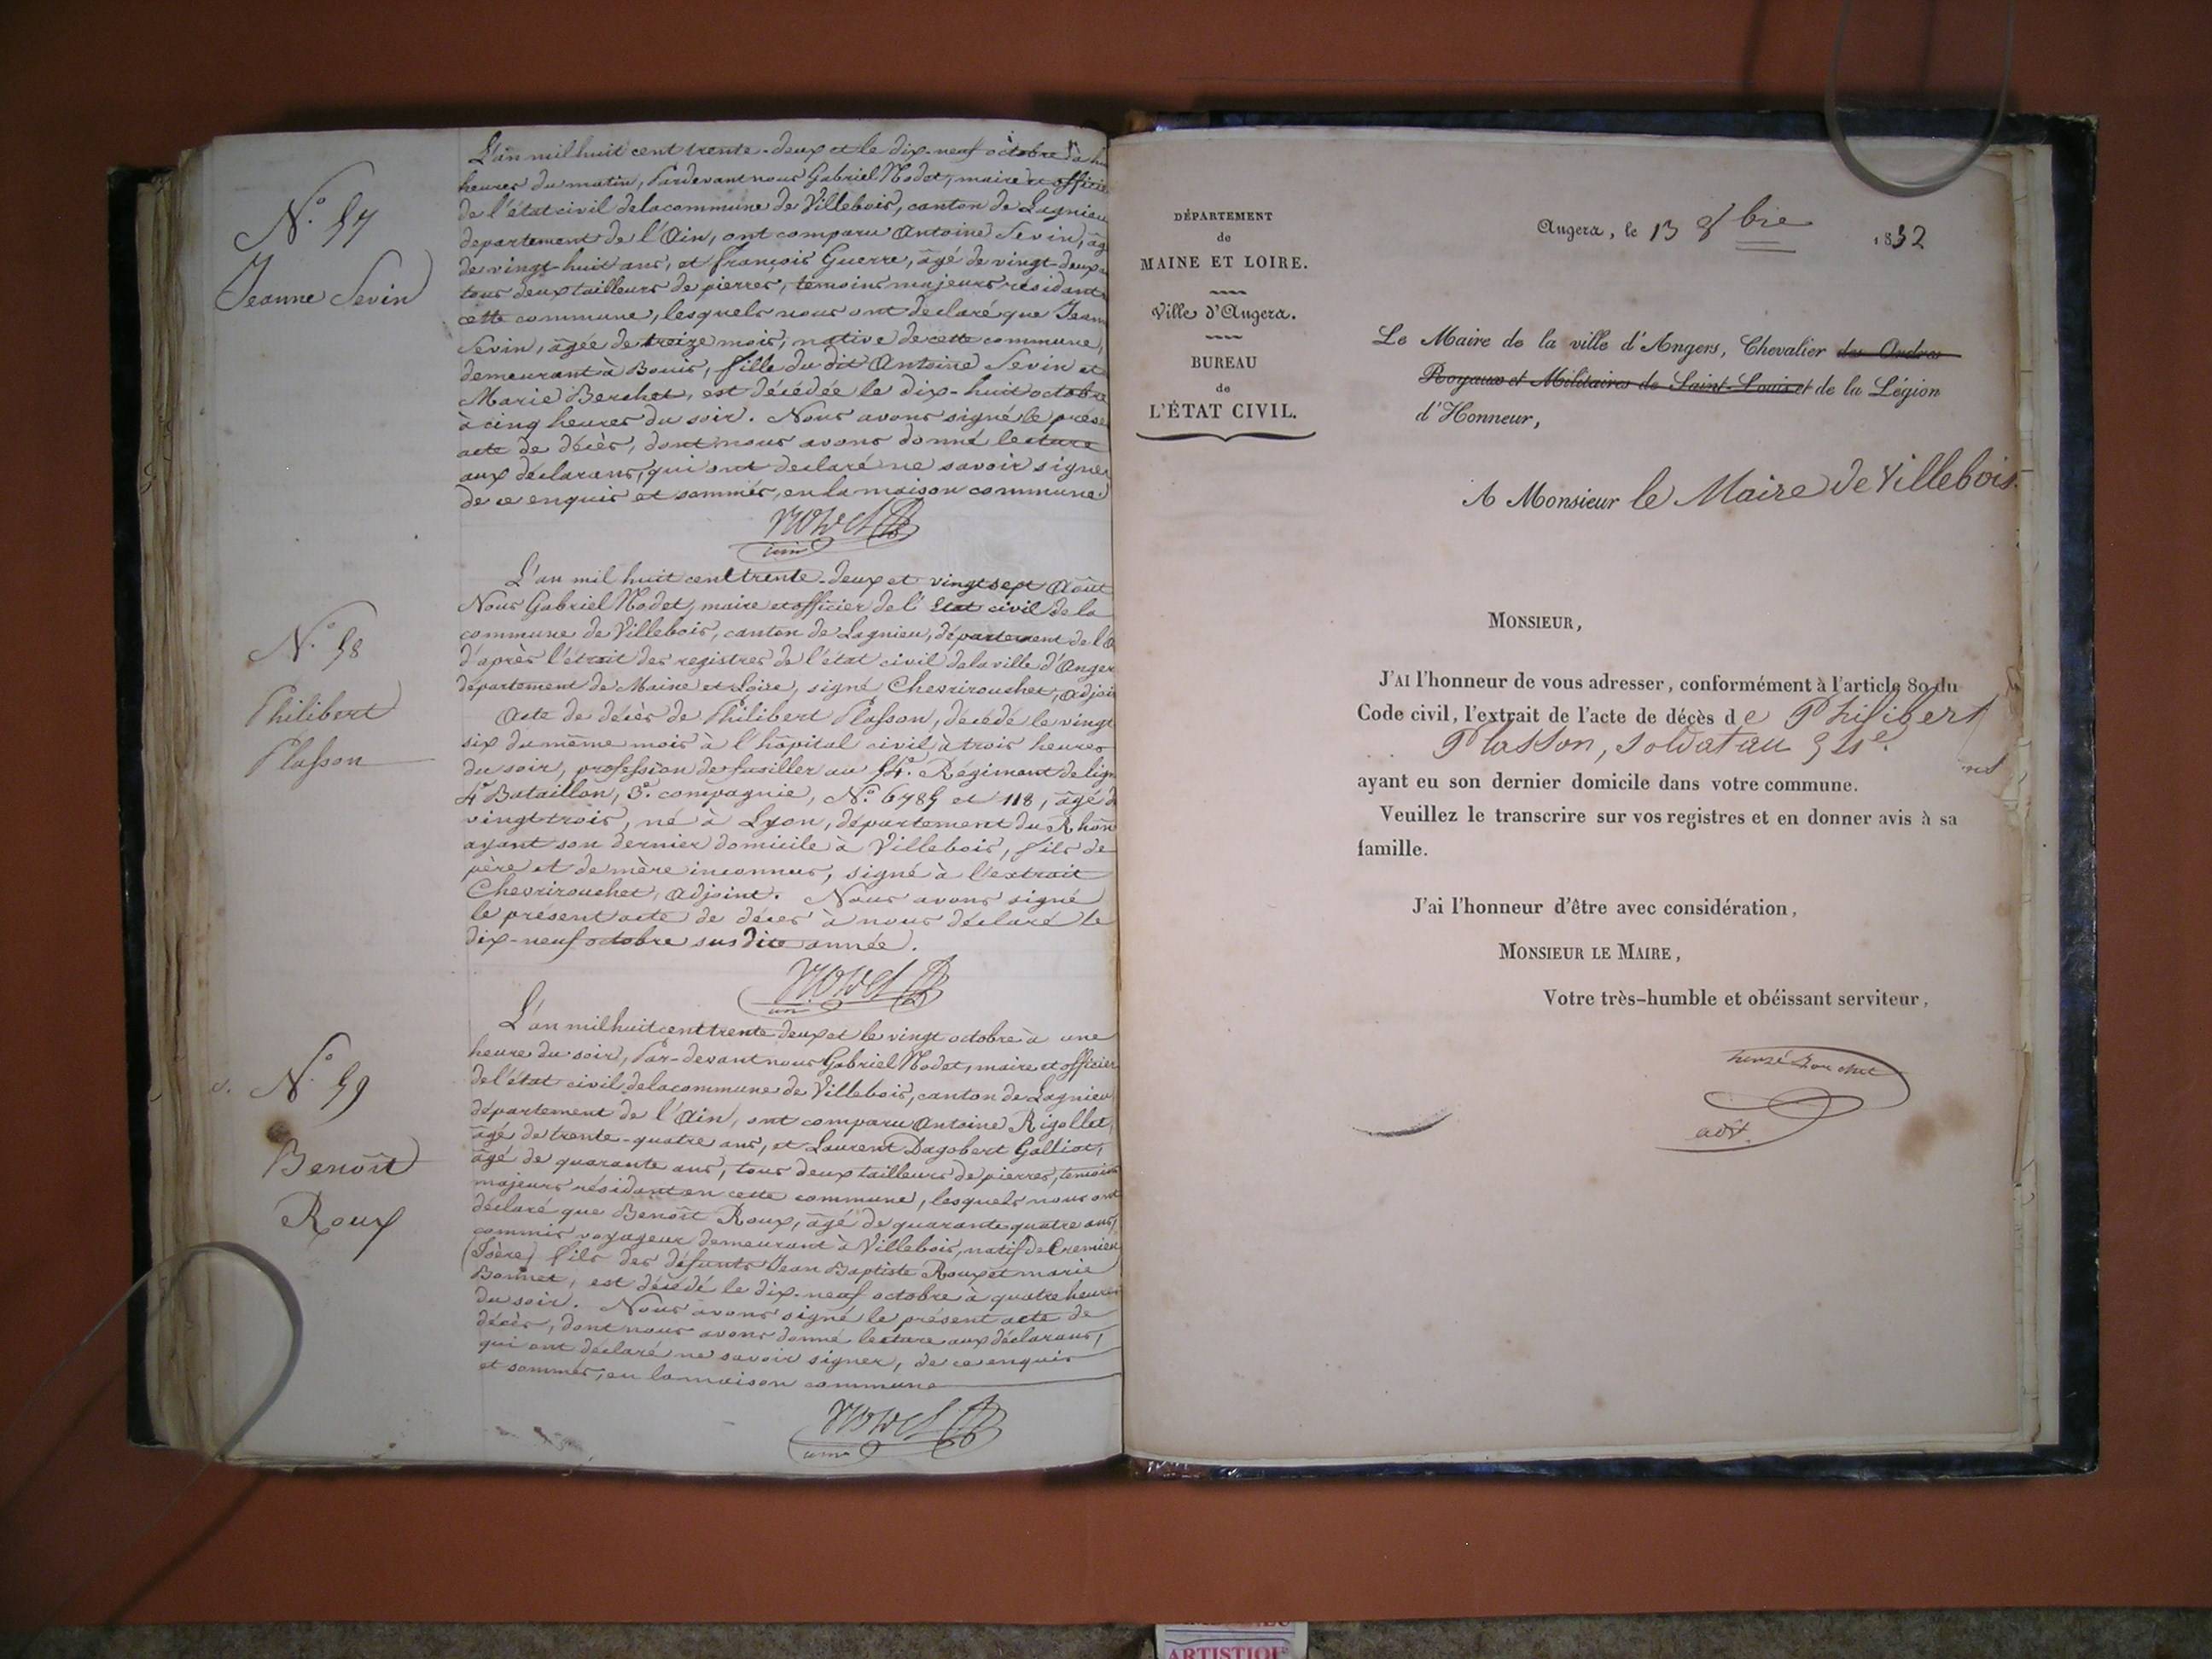 L'an mil huit cent trente-deux et le dix-neuf octobre à
heures du matin, Pardevant nous Gabriel Nodet, maire et officier
de l'état civil de la commune de Villebois, canton de Lagnieu
département de l'Ain, ont comparu Antoine Sevin, âg
de vingt-huit ans, et françois Guerre, âgé de vingt-deux
tous deux tailleurs de pierres, temoins majeurs résidant
cette commune, lesquels nous ont declaré que Jean
Sevin, âgée de treize mois, native de cette commune,
demeurant à Bouis, fille du dit Antoine Sevin et
Marie Berchet, est décédée le dix-huit octobre
à cinq heures du soir. Nous avons signé le prése
acte de décès, dont nous avons donné lecture
aux déclarans, qui ont declaré ne savoir signer
de ce enquis et sommés, en la maison commune.
N.° 57
Jeanne Sevin
L'an mil huit cent trente-deux et vingt sept Août
Nous Gabriel Nodet, maire et officier de l'état civil de la
commune de Villebois, canton de Lagnieu, département de l'A
d'après l'étrait des registres de l'état civil de la ville d'Anger
département de Maine et Loire, signé Chevrirouchet, adjoi
Acte de décès de Philibert Plasson, décédé le vingt
six du même mois à l'hôpital civil à trois heures
du soir, profession de fusiller au 54.e Régiment de lign
4.e Bataillon, 3.e compagnie, N.° 6785 et 118, âgé d
vingt trois, né à Lyon, département du Rhôn
ayant son dernier domicile à Villebois, fils de
père et de mère inconnus, signé à l'extrait
Chevrirouchet, adjoint. Nous avons signé
le présent acte de décès à nous déclaré le
dix-neuf octobre susdite année.
N.° 58
Philibert
Plasson
L'an mil huit cent trente deux et le vingt octobre à une
heure du soir, Par-devant nous Gabriel Nodet, maire et officier
de l'état civil de la commune de Villebois, canton de Lagnieu
département de l'Ain, ont comparu Antoine Rigollet,
âgé de trente-quatre ans, et Laurent Dagobert Galliot,
âgé de quarante ans, tous deux tailleurs de pierres, temoins
majeurs résidant en cette commune, lesquels nous ont
déclaré que Benoît Roux, âgé de quarante quatre ans,
commis voyageur demeurant à Villebois, natif de Cremieu
(Isère) fils des défunts Jean Baptiste Roux et marie
Bonnet, est décédé le dix-neuf octobre à quatre heures
du soir. Nous avons signé le présent acte de
décès, dont nous avons donné lecture aux déclarans,
qui ont declaré ne savoir signer, de ce enquis
et sommés, en la maison commune
N.° 59
Benoît
Roux
DÉPARTEMENT
de
MAINE ET LOIRE.
Ville d'Angers.
BUREAU
de
L'ÉTAT CIVIL.
Angers, le 13 8bre 1832
Le Maire de la ville d'Angers, Chevalier des Ordres
Royaux et Militaires de Saint-Louis et de la Légion
d'Honneur,
A Monsieur le Maire de Villebois.
MONSIEUR,
J'AI l'honneur de vous adresser, conformément à l'article 80 du
Code civil, l'extrait de l'acte de décès de Philibert
Plasson, soldat au 54e
ayant eu son dernier domicile dans votre commune.
Veuillez le transcrire sur vos registres et en donner avis à sa
famille.
J'ai l'honneur d'être avec considération,
MONSIEUR LE MAIRE,
Votre très-humble et obéissant serviteur,
adj.
ARTISTIQUE